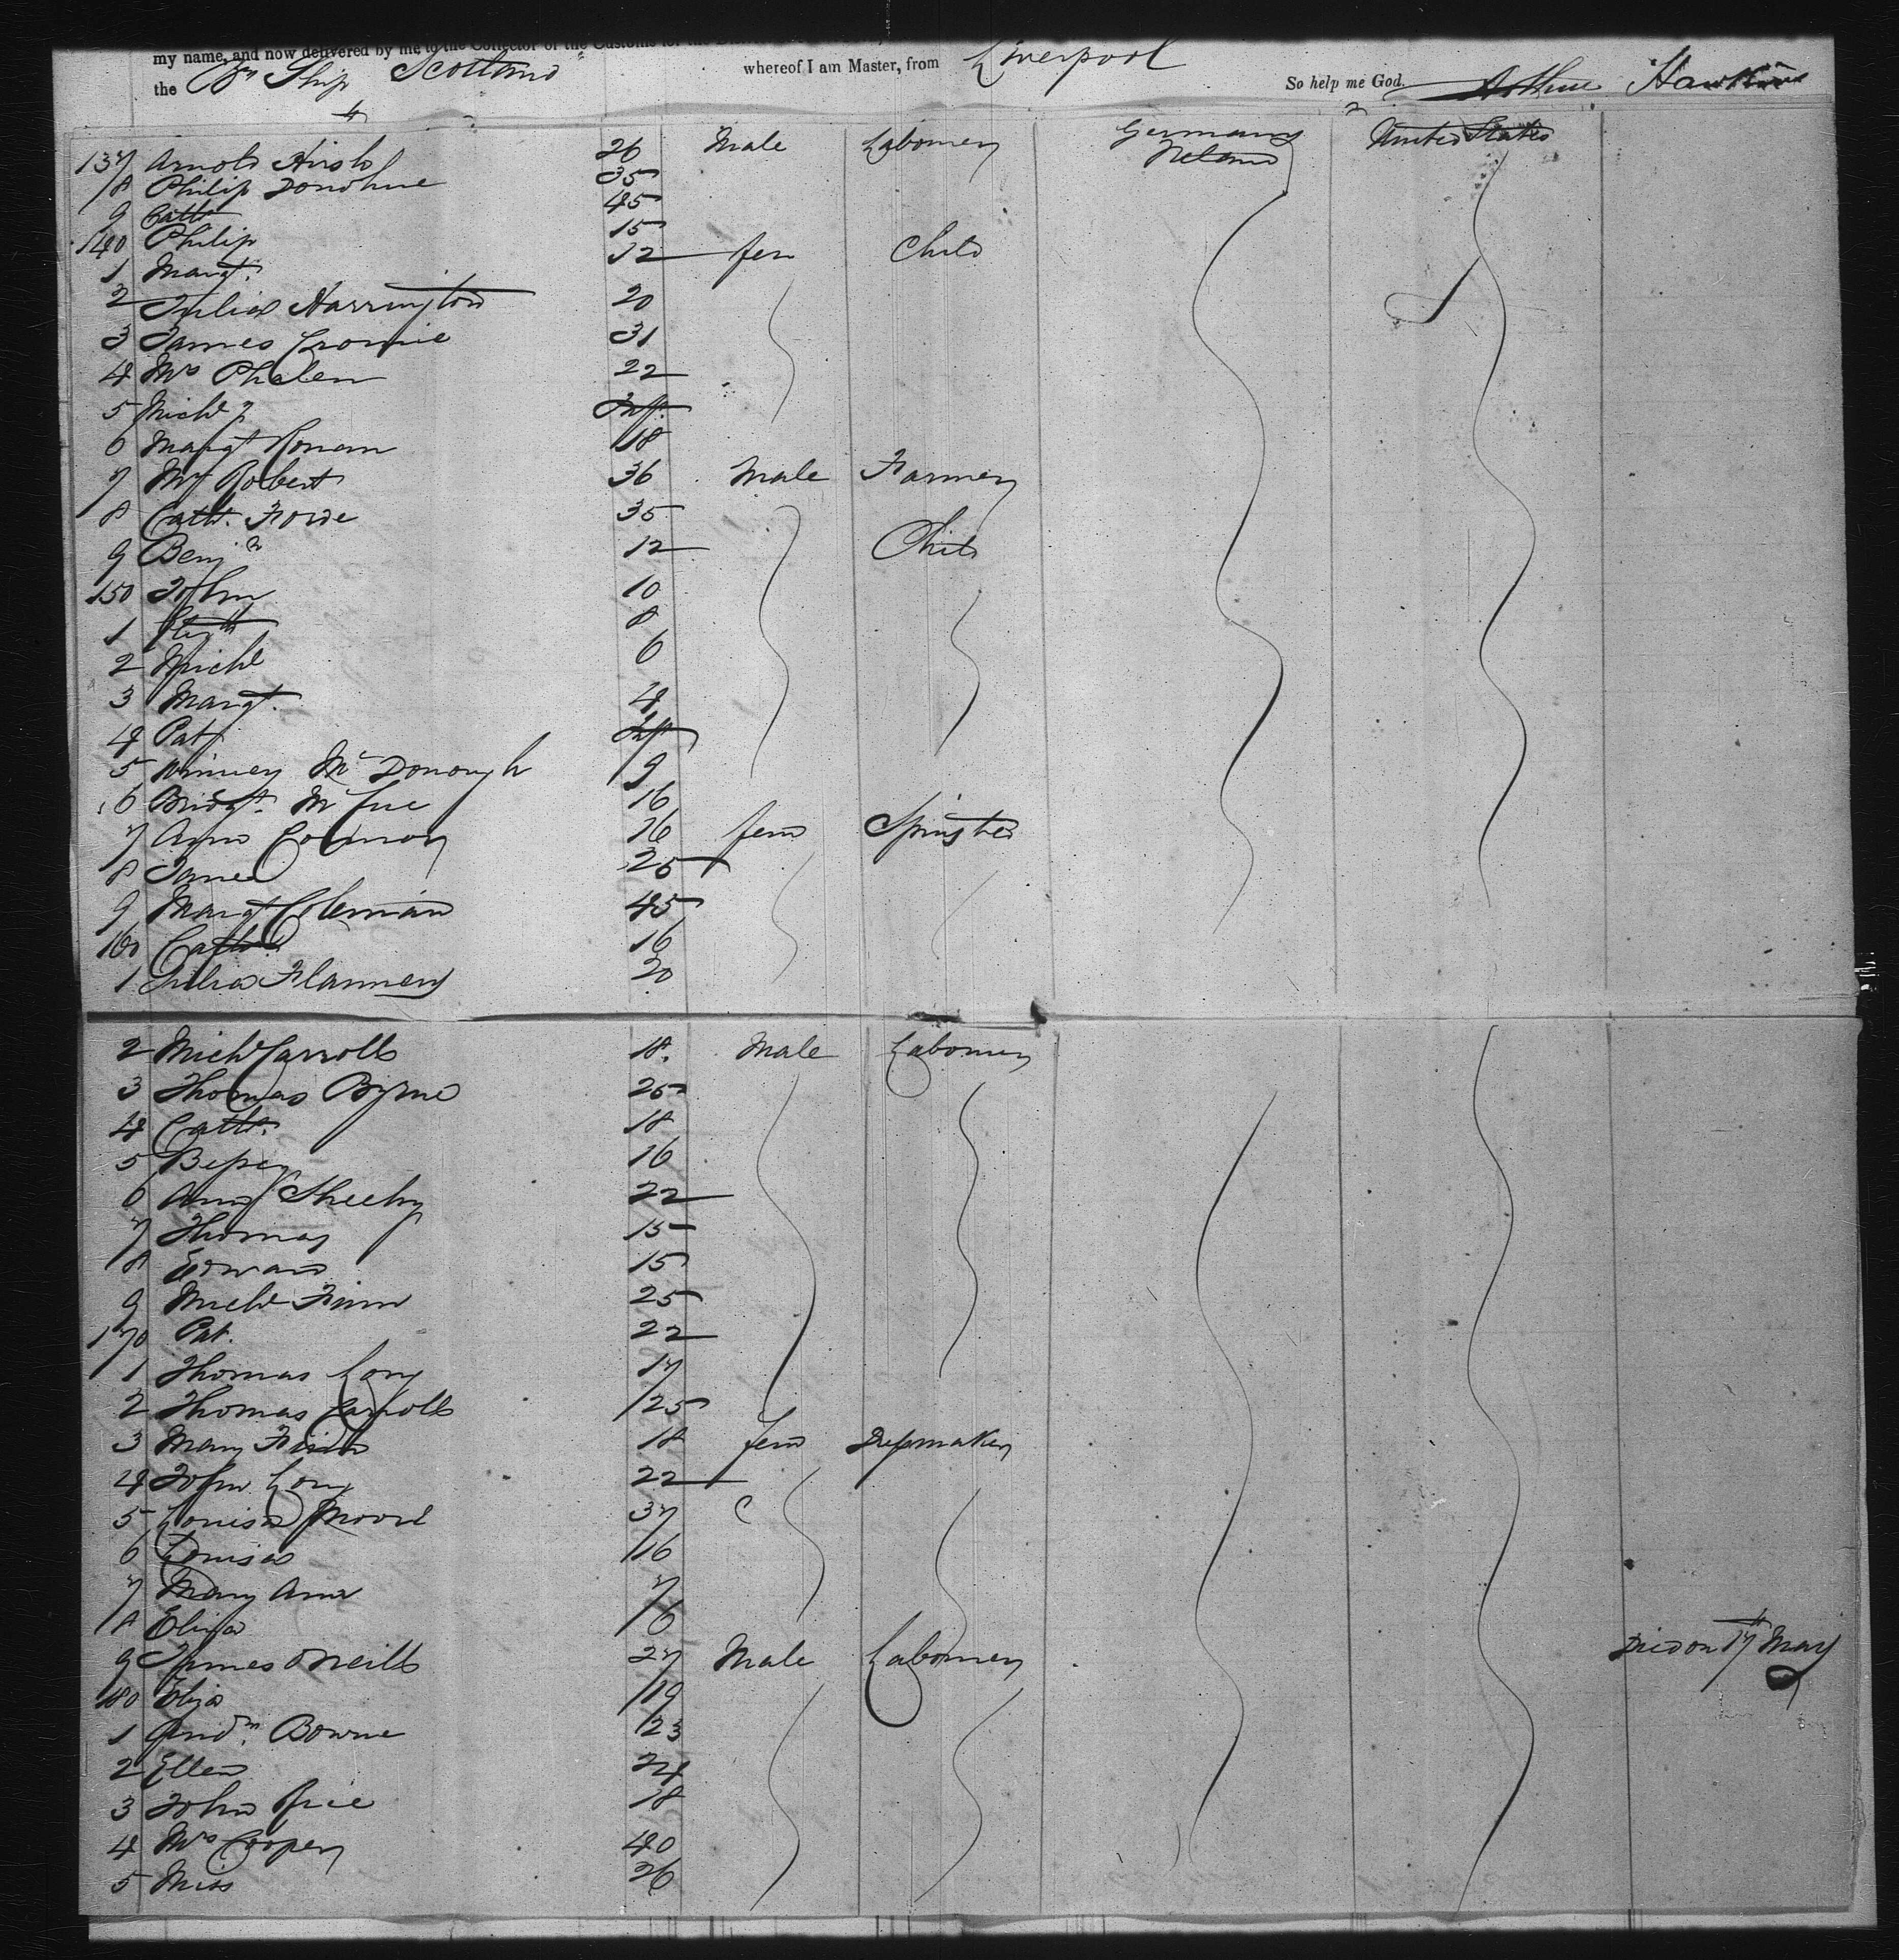 my name, and now delivered by me to the Collector of the Customs for the
the Br Ship "Scotland" whereof I am Master, from Liverpool So help me God. Arthur Hawkins
137 Arnold Hirsh 26 Male Labourer Germany United States
8 Philip Donohue 35 Ireland
9 Cathe 45
140 Philip 15
1 Margt. 12 fem Child
2 Julia Harrington 20
3 James Cromie 31
4 Mrs Phalen 22
5 Michl Inft.
6 Margt Ronan 18
7 Robert 36 Male Farmer
8 Cathe. Forde 35
9 Benjn 12 Child
150 John 10
1 8
2 Michl 6
3 Margt. 4
4 Pat Inft
5 Winney McDonough 9
6 Bridgt. McCue 16
7 Ann 16 fem Spinster
8 James 25
9 Margt Coleman 45
160 Cathe. 16
1 Julia Flannery 20
2 Michl Carroll 18. Male Labourer
3 Thomas Byrne 25
4 Cathe. 18
5 Bessey 16
6 Ann Sheehy 22
7 Thomas 15
8 Edward 15
9 Michl Finn 25
170 Pat. 22
1 Thomas Long 17
2 Thomas Carroll 25
3 Mary Finn 18 fem Dressmaker
4 John Long 22
5 Louisa Moore 37
6 Louisa 16
7 Mary Ann 7
8 Eliza 6
9 James O'Neill 27 Male Labourer Died on 17th May
180 Eliza 19
1 Bowne 23
2 Ellen 24
3 John Rice 18
4 Mrs Cooper 40
5 Miss 26